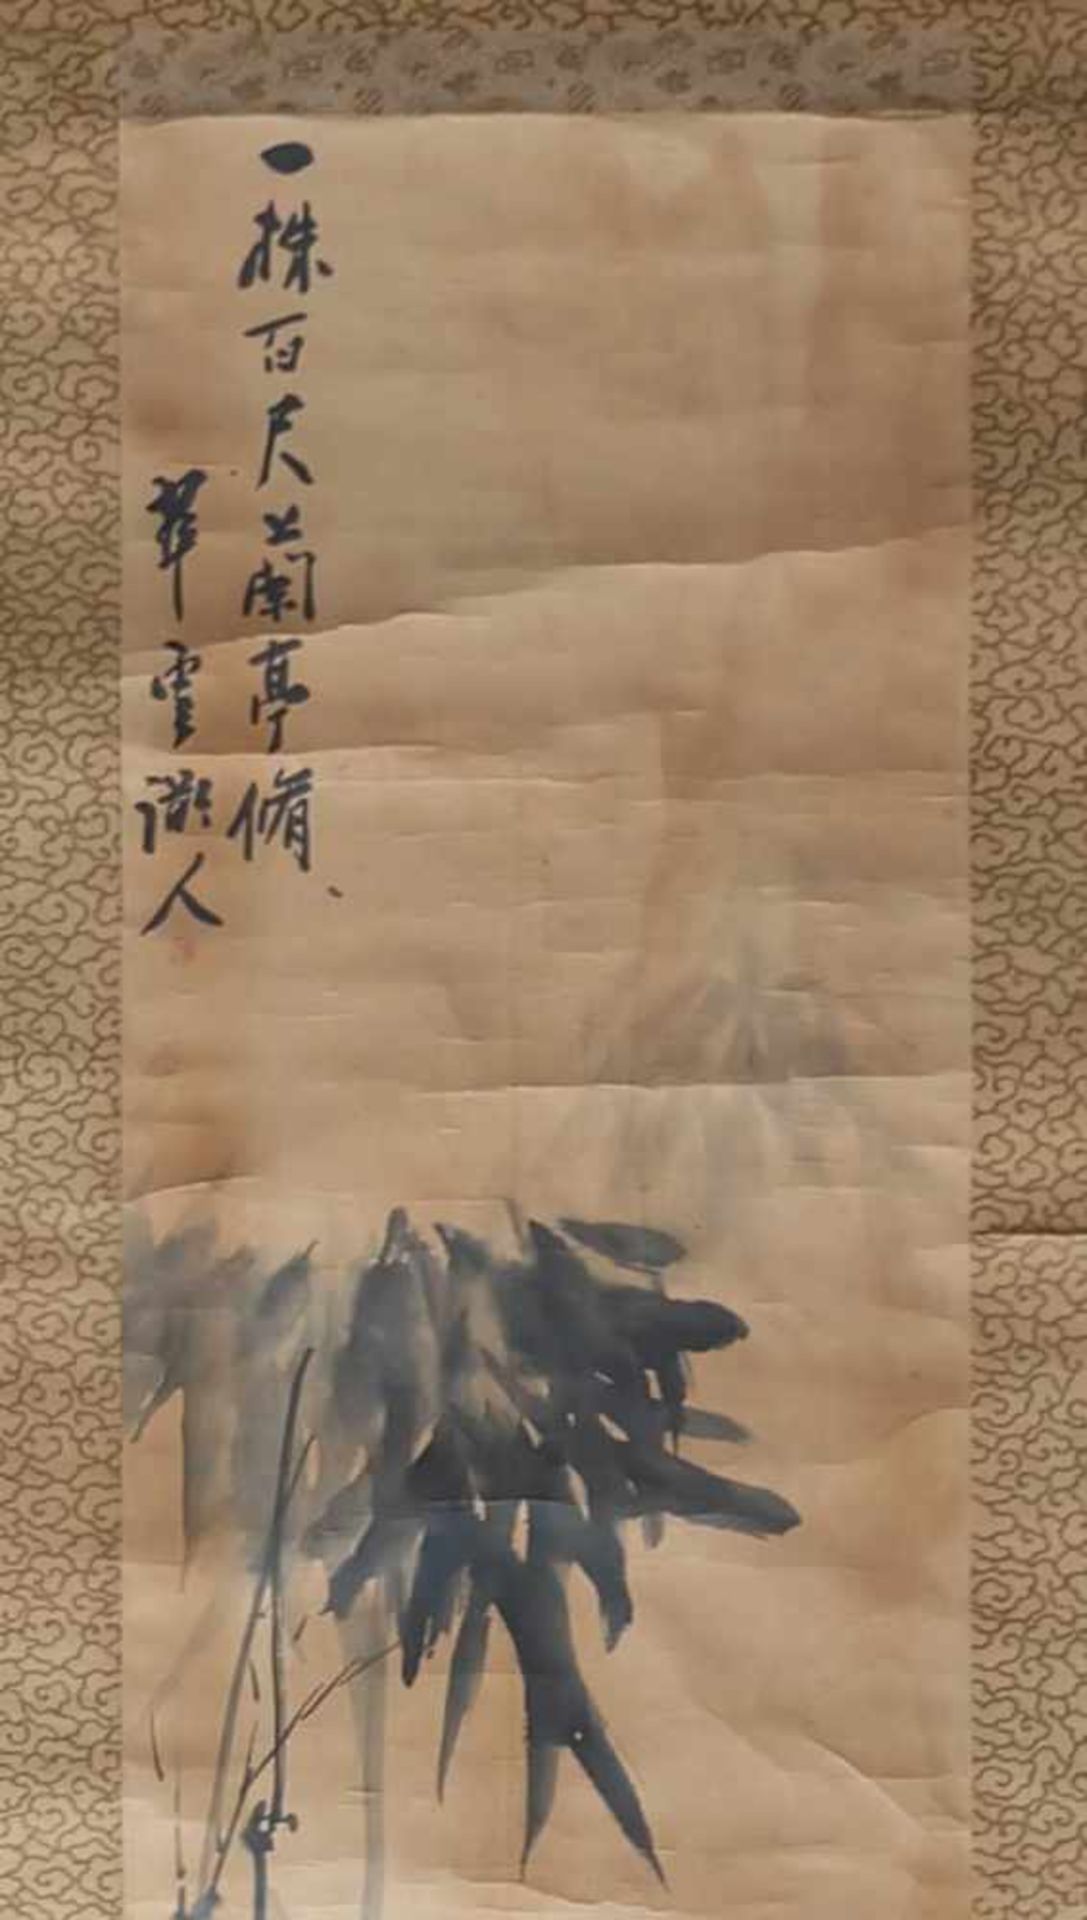 一株百尺蘭亭脩
翠雲谿人